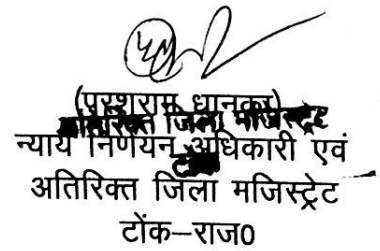 (परशराम धानका)
अतिरिक्त जिला मजिस्ट्रेट
न्याय निर्णयन अधिकारी एवं
अतिरिक्त जिला मजिस्ट्रेट
टोंक–राज0